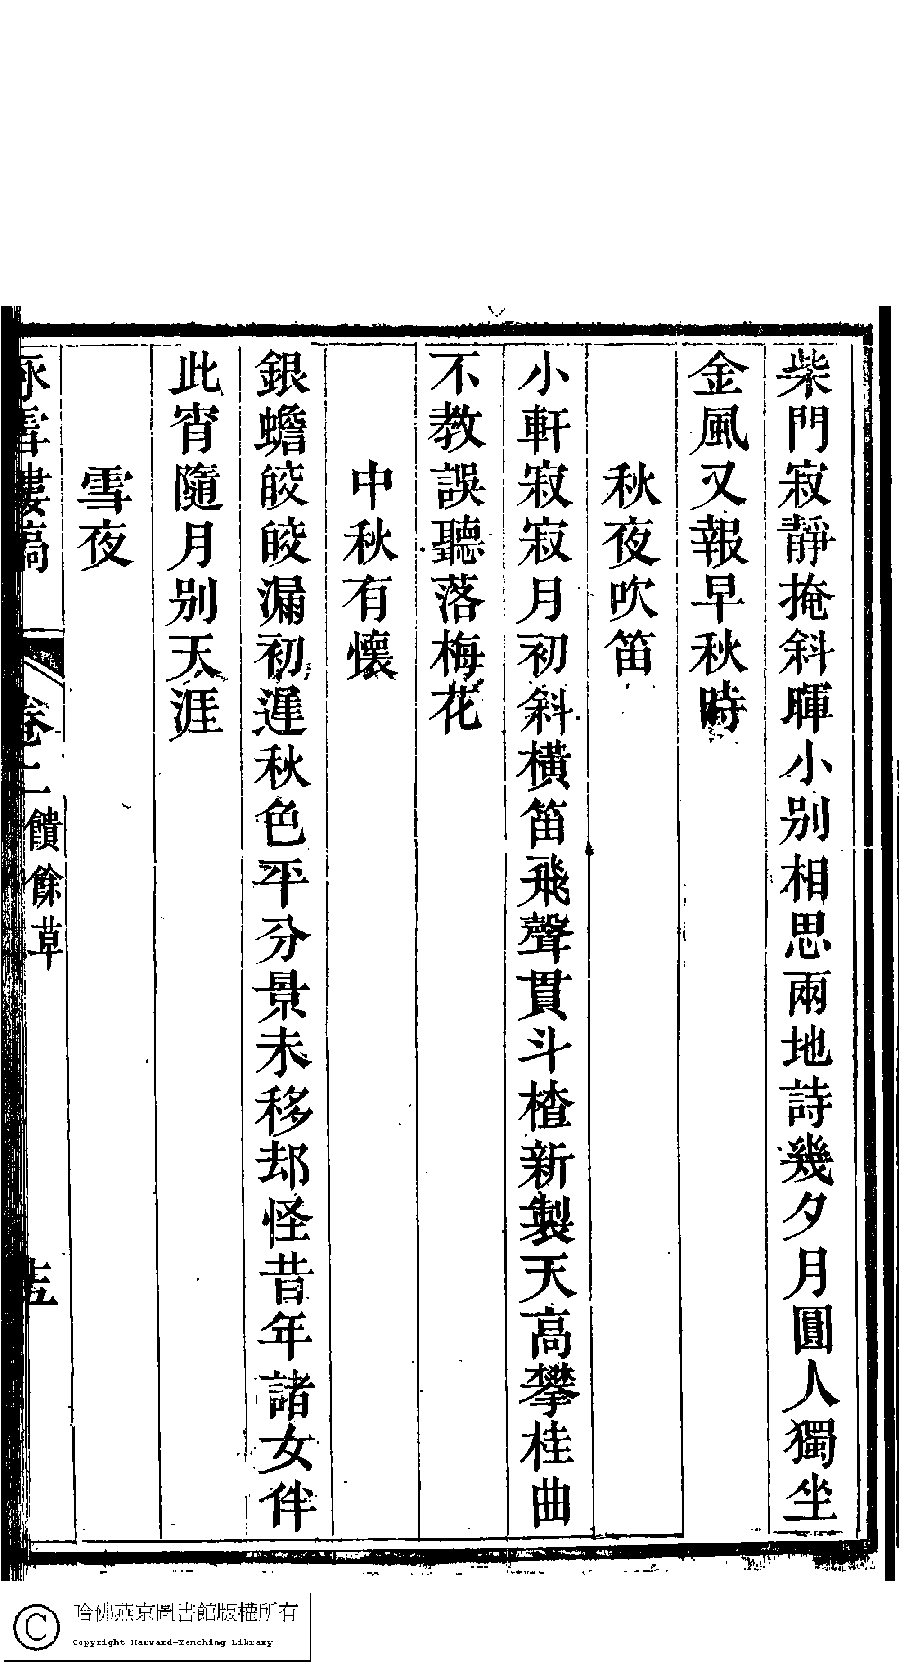 柴門寂靜掩斜暉小别相思兩地詩幾夕月圓人獨坐
金風又報早秋時
秋夜吹笛
小軒寂寂月初斜橫笛飛聲貫斗楂新製天高攀桂曲
不教誤聽落梅花
中秋有懷
銀蟾皎皎漏初遲秋色平分景未移却怪昔年諸女伴
此宵隨月别天涯
雪夜
詠雪樓稿 卷二 饋餘草 十五
哈佛燕京圖書館版權所有
Copyright Harvard-Yenching Library